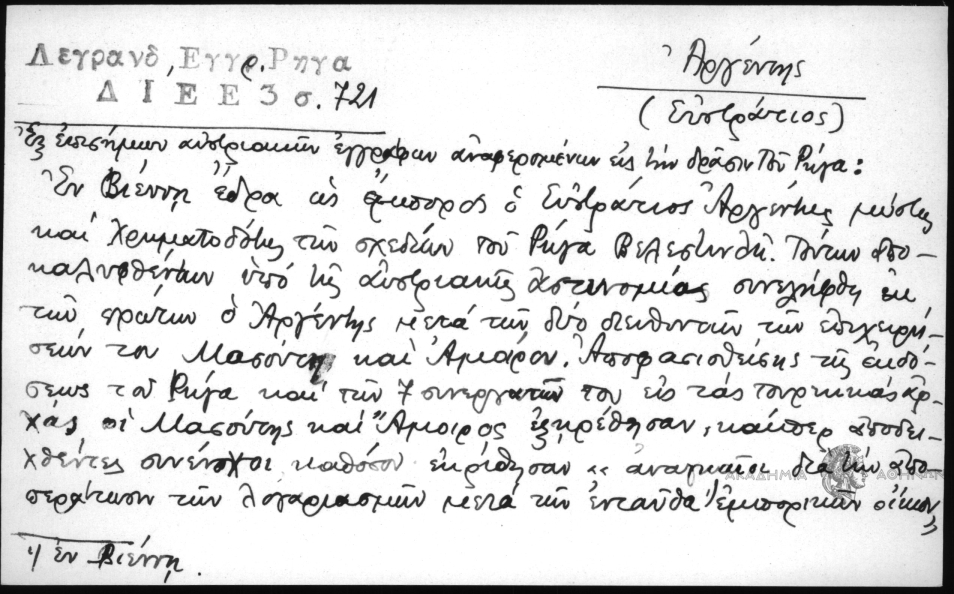 Λεγρανδ, Εγγρ. Ρηγα
Δ Ι Ε Ε 3 σ. 721
Ἀργέντης
(Εὐστράτιος)
Ἐξ ἐπισήμων αὐστριακῶν ἐγγράφων ἀναφερομένων εἰς τὴν δρᾶσιν τοῦ Ρήγα:
Ἐν Βιέννῃ ἕδρα ὡς ἔμπορος ὁ Εὐστράτιος Ἀργέντης μύστης
καὶ χρηματοδότης τῶν σχεδίων τοῦ Ρήγα Βελεστινλῆ. Τούτων ἀπο-
καλυφθέντων ὑπὸ τῆς αὐστριακῆς ἀστυνομίας συνελήφθη ἐκ
τῶν πρώτων ὁ Ἀργέντης μετὰ τῶν δύο διευθυντῶν τῶν ἐπιχειρή-
σεών του Μασούτη καὶ Ἀμοιρον. Ἀποφασισθείσης τῆς ἐκδό-
σεως τοῦ Ρήγα καὶ τῶν 7 συνεργατῶν του εἰς τὰς τουρκικὰς ἀρ-
χάς, οἱ Μασούτης καὶ Ἄμοιρος ἐξῃρέθησαν, καίπερ ἀποδει-
χθέντες συνένοχοι καθόσον ἐκρίθησαν «ἀναγκαῖοι διὰ τὴν ἀπο-
περάτωσιν τῶν λογαριασμῶν μετὰ τῶν ἐνταῦθα¹⁾ ἐμπορικῶν οἴκων»
1) ἐν Βιέννῃ.
ΑΚΑΔΗΜΙΑ ΑΘΗΝΩΝ